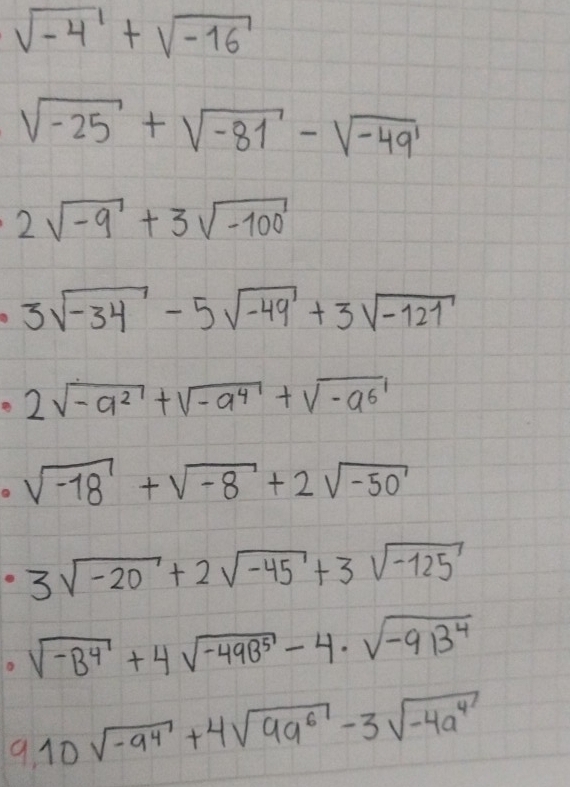 √-4 + √-16
√-25 + √-81 - √-49
2√-9 + 3√-100
3√-34 - 5√-49 + 3√-121
2√-a² + √-a⁴ + √-a⁶
√-18 + √-8 + 2√-50
3√-20 + 2√-45 + 3√-125
√-B⁴ + 4√-49B⁵ - 4·√-9B⁴
9. 10√-a⁴ + 4√9a⁶ - 3√-4a⁴